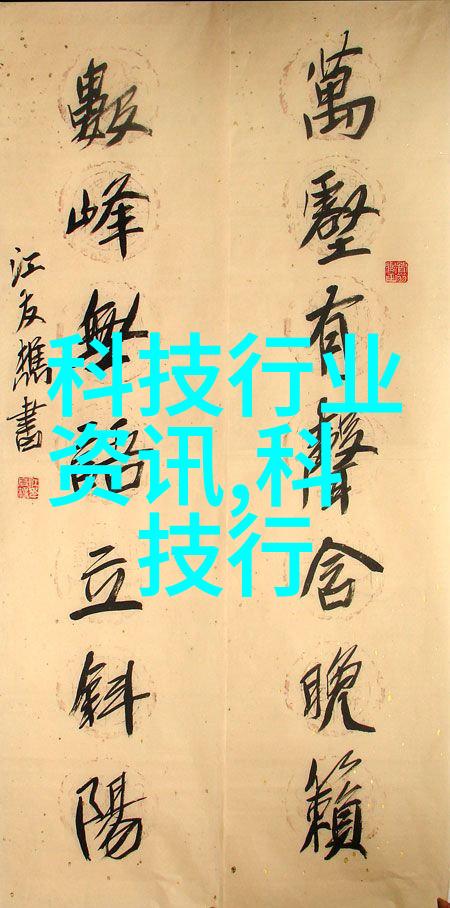 萬壑有聲含晚籟
數峰無語立斜陽
江友樵書
科技行业
资讯,科
技行